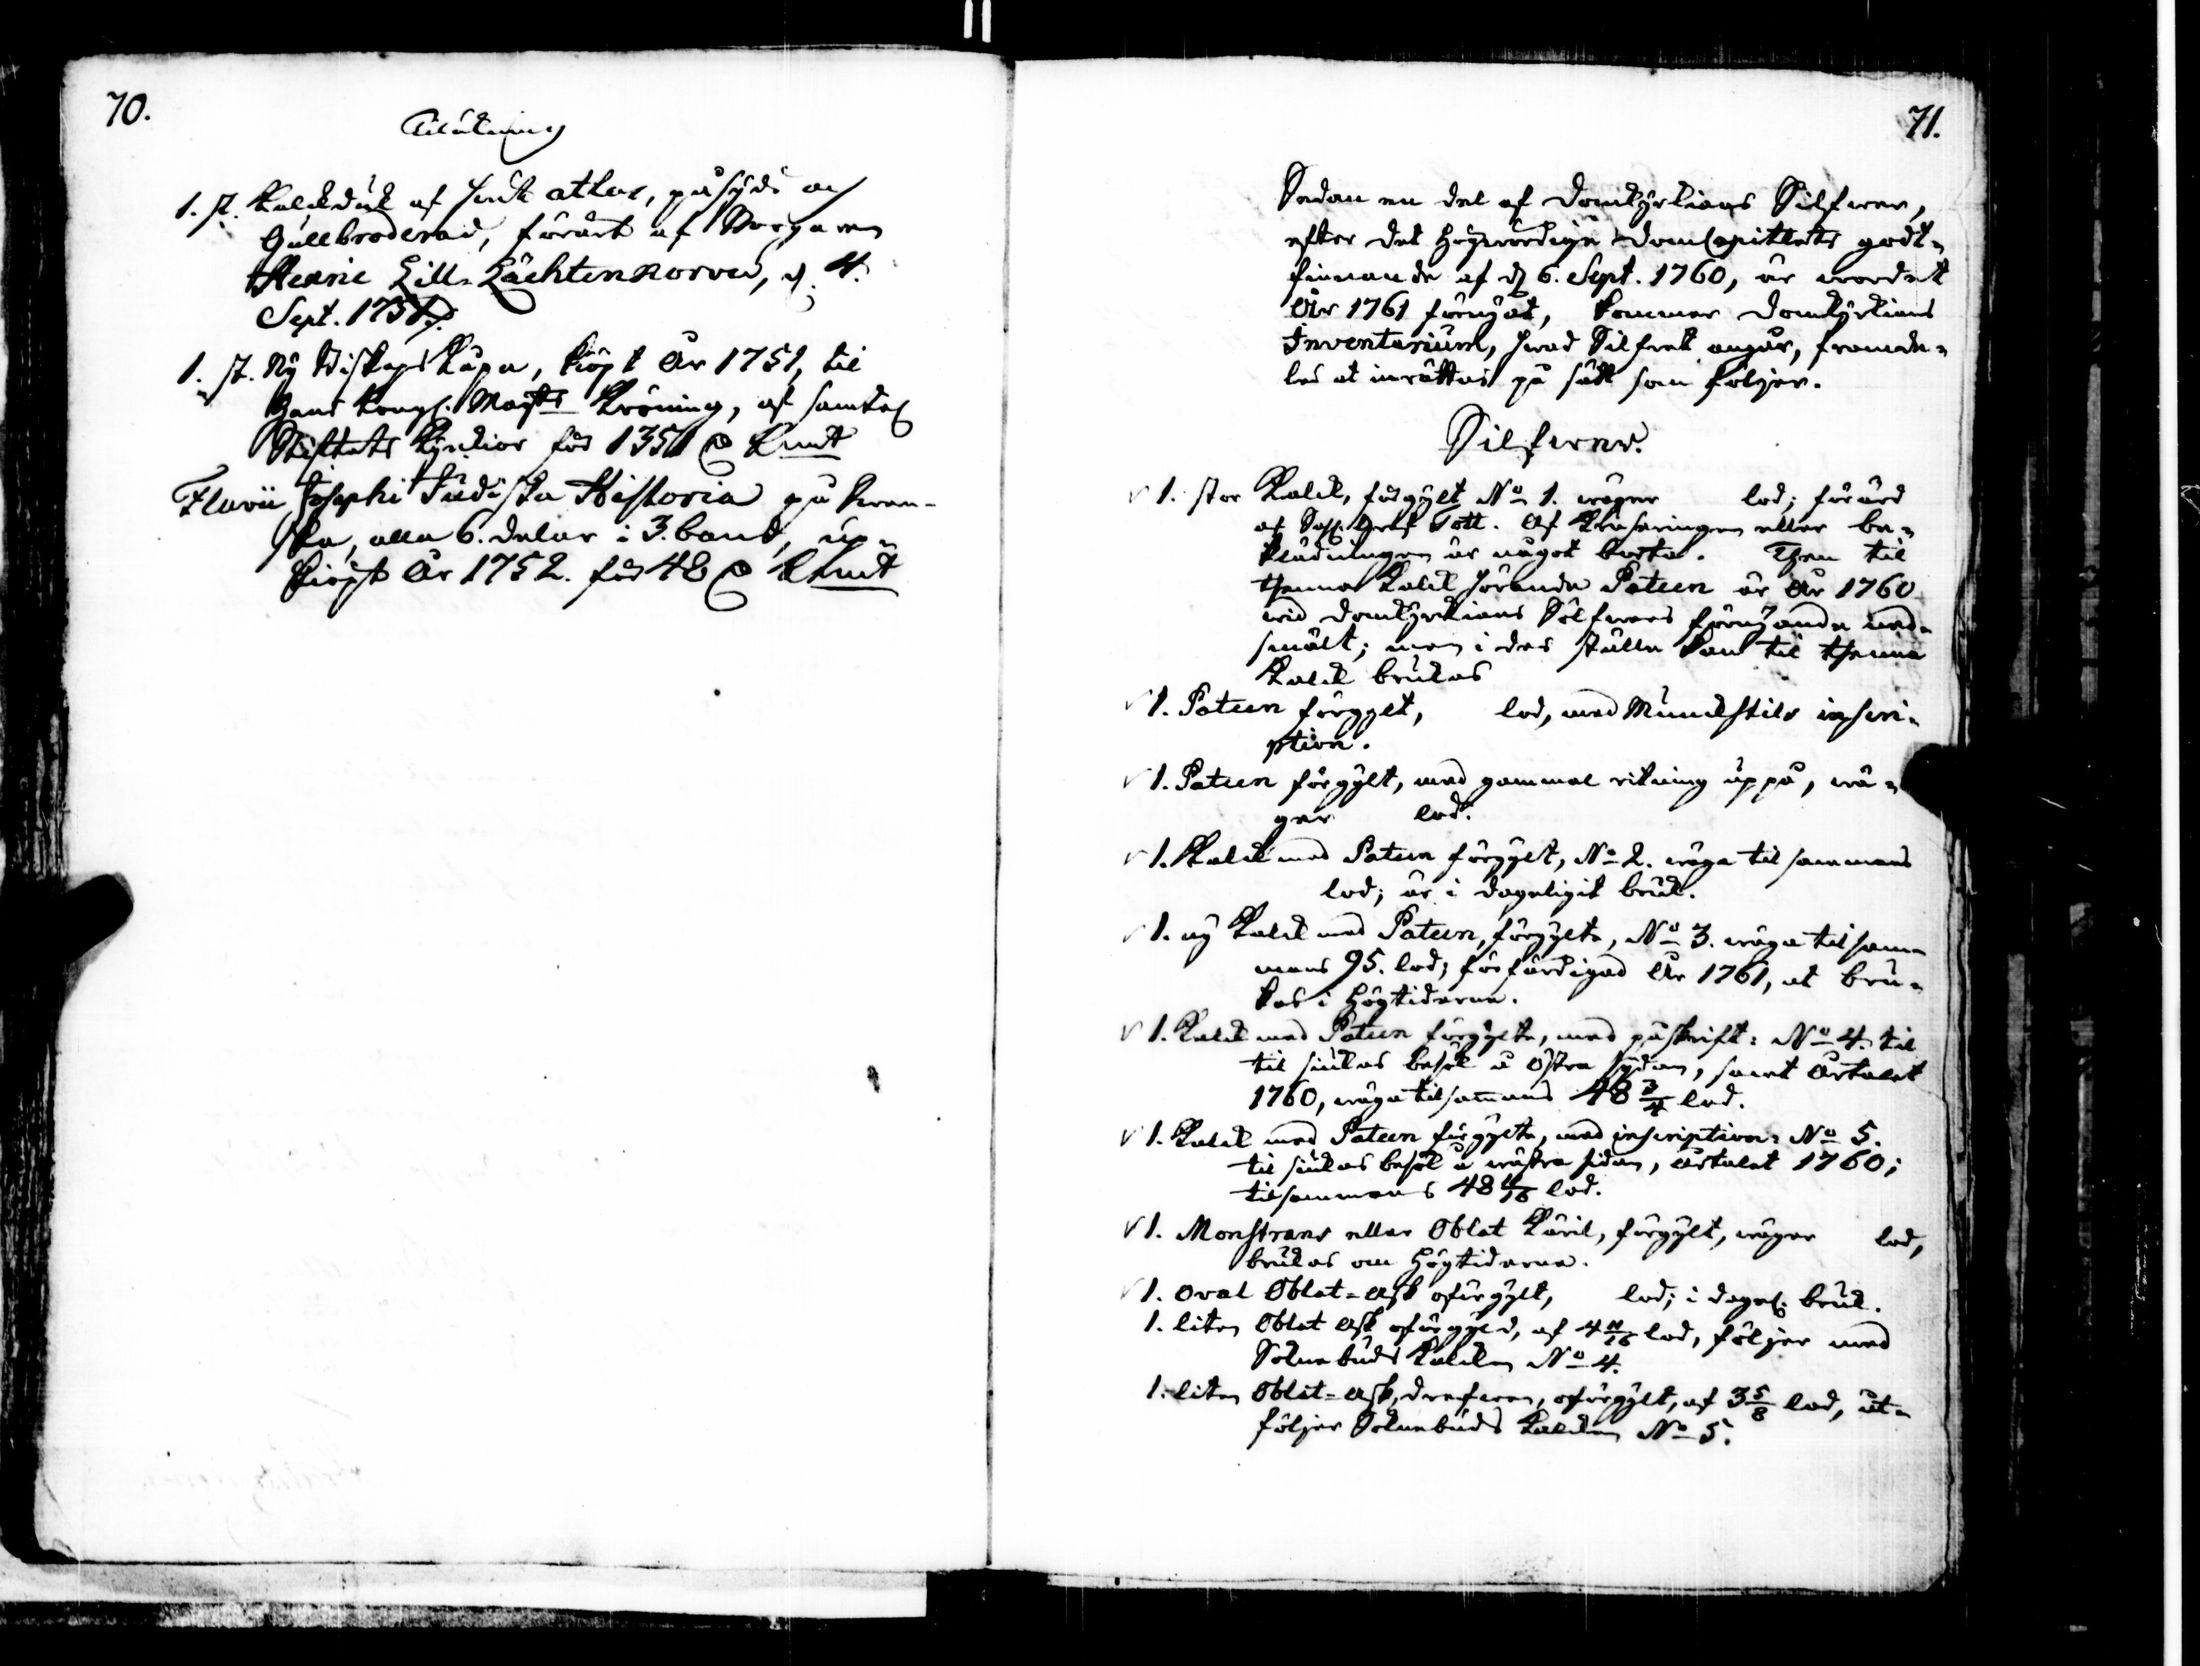 70.
Tilökning
1. st. Kalckduk af hvit atlas, påsydt och
Gullbroderad, förärt af Borgaren
Henric Lill-Lächtenkorva, d. 4.
Sept. 1751.
1. st. Ny Biskops Kåpa, köpt År 1751, til
Hans Kongl. Maj:ts Kröning, af samtel.
Stiftets Kyrkior för 1351 D:r Kmt
Flavii Josephi Judiska Historia på Swen-
ska, alla 6. delar i 3. band, up-
kiöpt År 1752. för 48 D:r Kmt
71.
Sedan en del af Domkyrkians Silfwer,
efter det Högwördige DomCapitlets godt-
finnande af d. 6. Sept. 1760, är wordet
År 1761 förnyat, kommer Domkyrkians
Inventarium, hwad Silfret angår, framde-
les at inrättas på sätt som följer.
Silfwer.
1. stor Kalck, förgylt No 1. wäger lod; förärd
af Sal. Gref Tott. Af Kruseringen eller be-
klädningen är något borta. Then til
thenna Kalck hörande Pateen är År 1760
wid Domkyrkians Silfwers förnyande ned-
smält; men i des ställe kan til thenna
Kalck brukas
1. Pateen förgylt, lod, med Munckstils inscri-
ption.
1. Pateen förgylt, med gammal ritning uppå, wä-
ger lod.
1. Kalck med Pateen förgylt, No 2. wäga tilsammans
lod; är i dageligit bruk.
1. ny Kalck med Pateen, förgylte, No 3. wäga tilsam-
mans 95. lod; förfärdigad År 1761, at bru-
kas i Högtiderna.
1. Kalck med Pateen förgylte, med påskrift: No 4. til
til siukas behof å Östra sydan, samt Årtalet
1760, wäga tilsammans 48 3/4 lod.
1. Kalck med Pateen förgylte, med inscription: No 5.
til siukas behof å wästra sidan, årtalet 1760;
tilsammans 48 4/16 lod.
1. Monstrans eller Oblat Käril, förgylt, wäger lod,
brukas om Högtiderna.
1. oval Oblat-Ask oförgylt, lod; i dagel. bruk.
1. liten Oblat Ask oförgyld, af 4 11/16 lod, följer med
Soknebuds Kalcken No 4.
1. liten Oblat-Ask, drefwen, oförgylt, af 3 5/8 lod, åt-
följer Soknebuds Kalcken No 5.